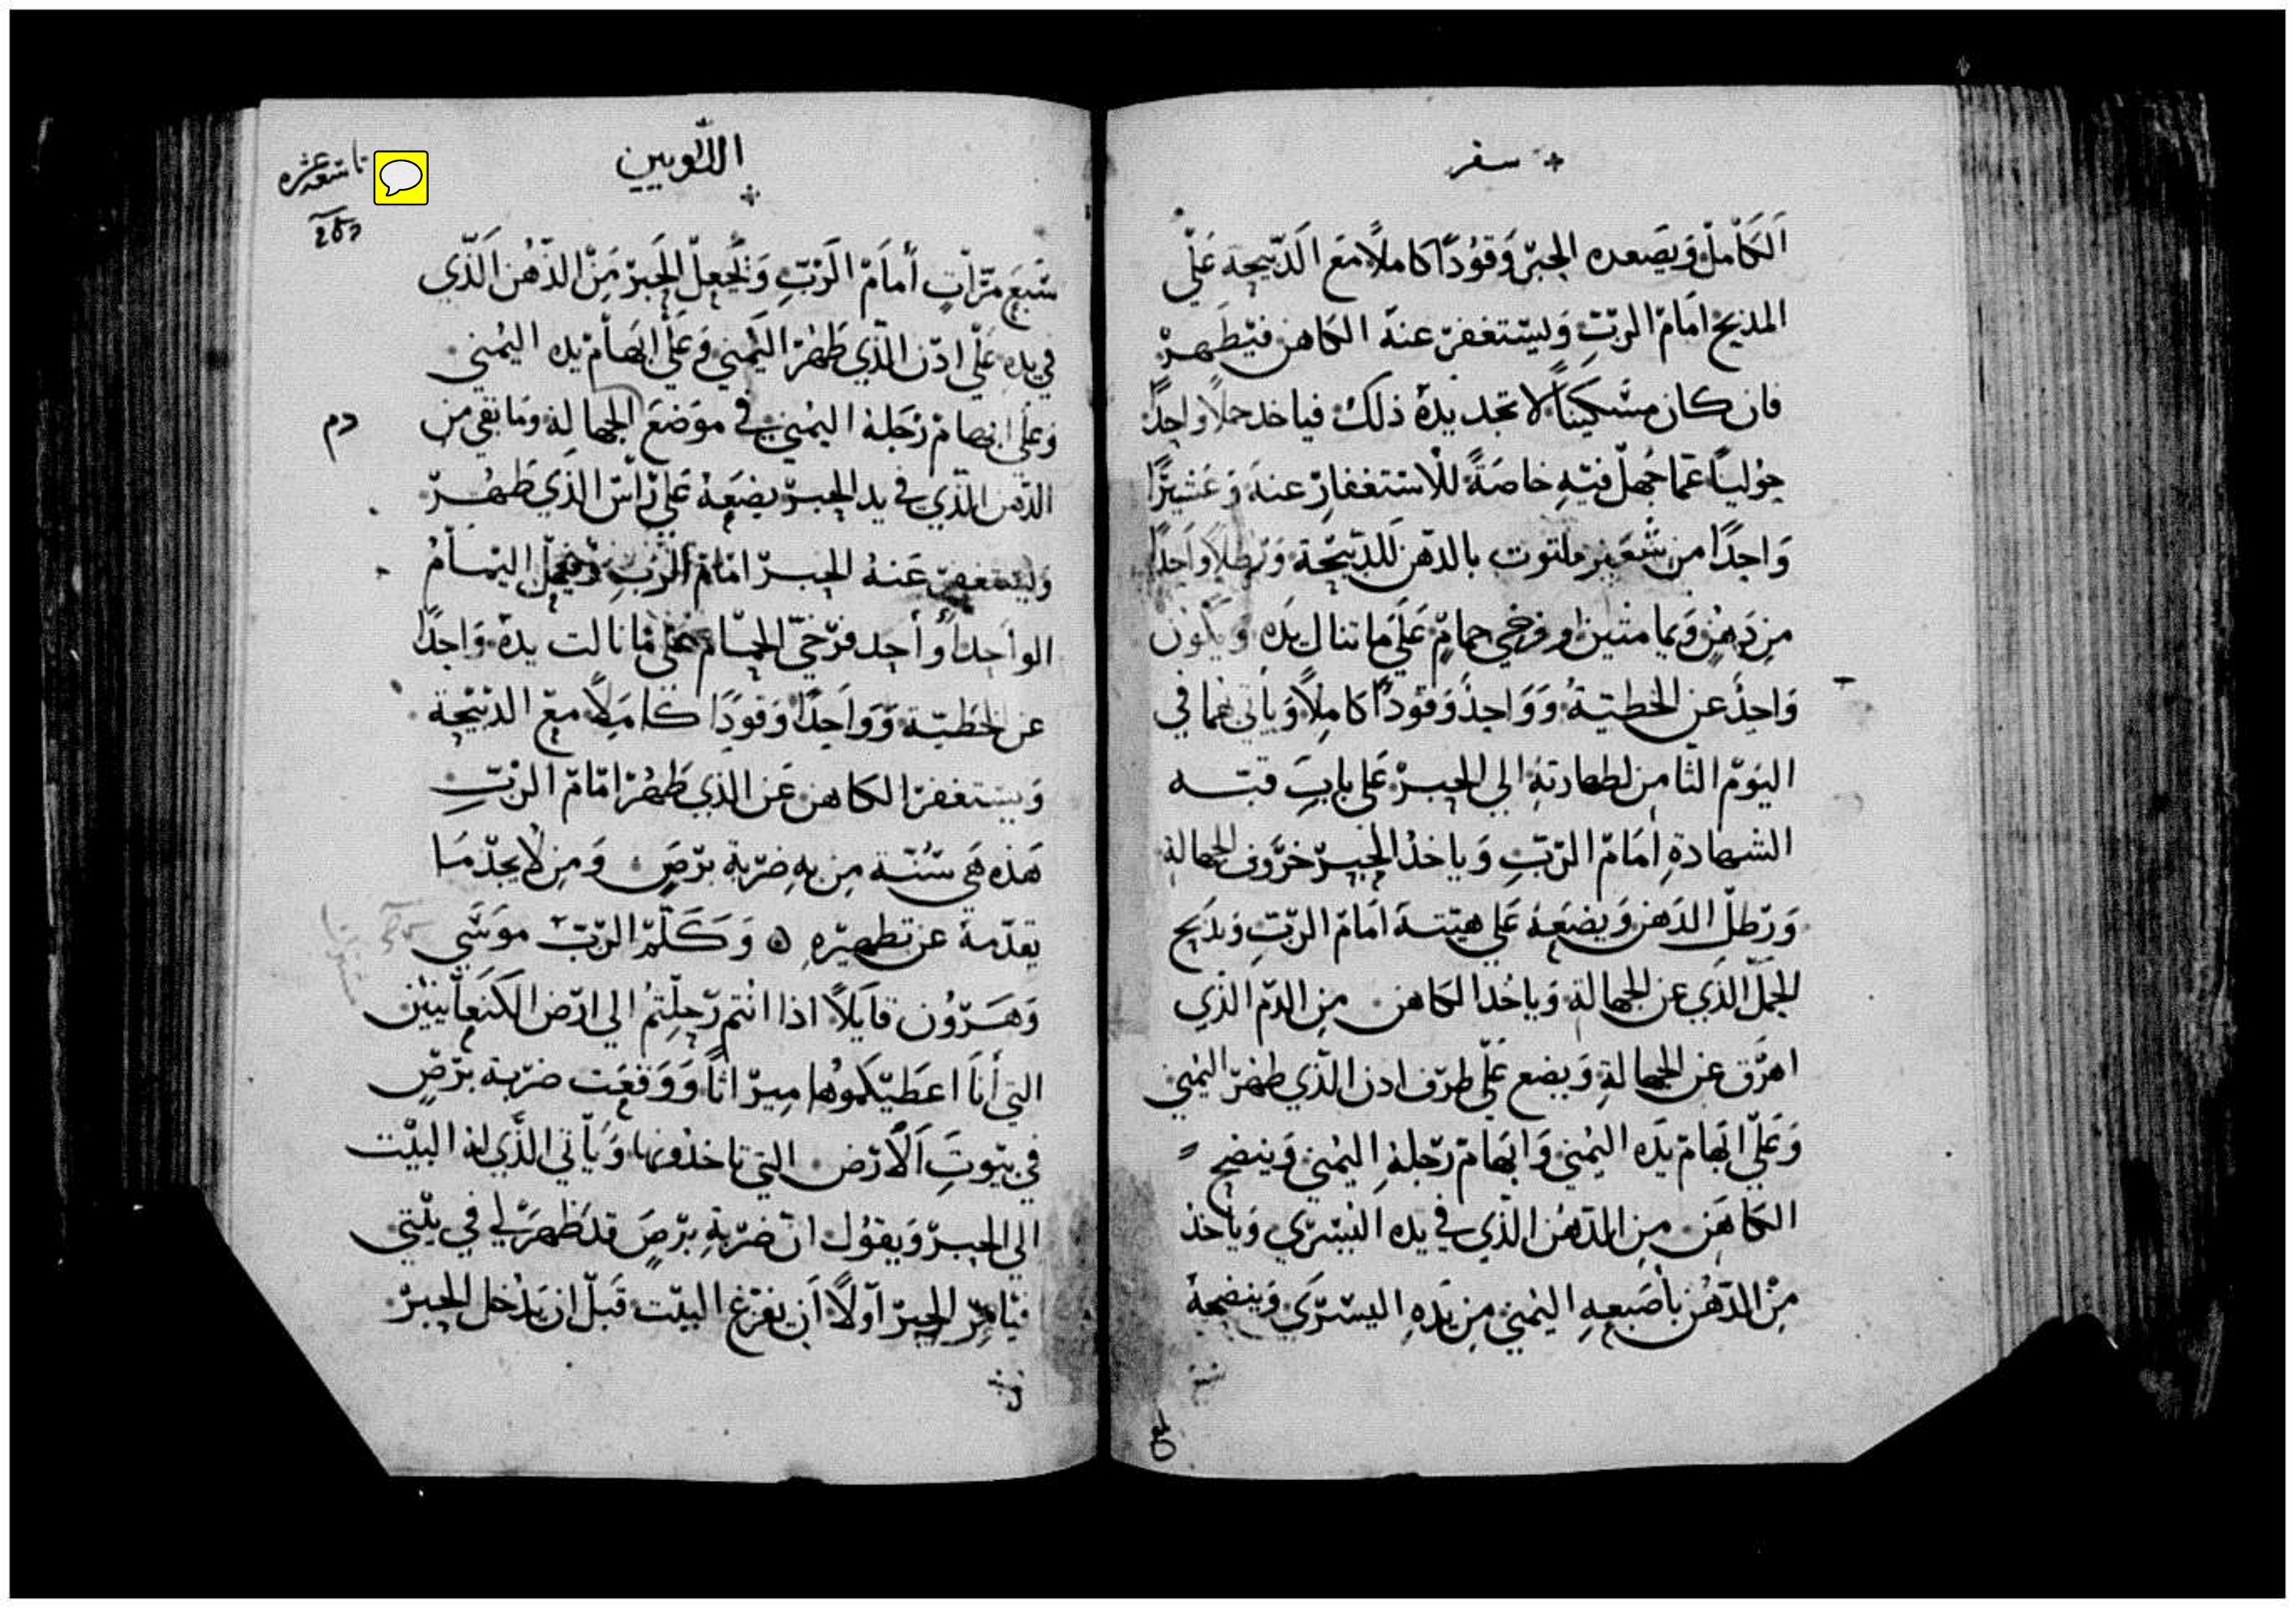 سفر
الكَامل ويصعده الحبر وقودًا كاملًا مع الدبيحة علي
المذبح امام الرب وليستغفر عنه الكاهن فيطهر
فان كان مسكينًا لا تجد يده ذلك فياخد حملًا واحدًا
حوليًا عما جهل فيه خاصةً للاستغفار عنه وعشيرًا
واحدًا من شعير ملتوت بالدهن للدبيحة ورطلًا واحدًا
من دهن ويمامتين او فرخي حمام علي ما تنال يده ويكون
واحدً عن الخطية وواحدً وقودًا كاملًا وياتي بهما في
اليوم الثامن لطهارته الي الحبر علي باب قبته
الشهادة امام الرب وياخذ الحبر خروف الجهالة
ورطل الدهن ويضعه علي هيته امام الرب ويذبح
الحمل الذي عن الجهالة وياخذ الكاهن من الدم الذي
اهرق عن الجهالة ويضع علي طرف ادن الذي طهر اليمني
وعلي ابهام يده اليمني وابهام رجله اليمني وينضح
الكاهن من الدهن الذي في يده اليسري وياخذ
من الدهن بأصبعه اليمني من يده اليسري وينضحه
اللاويين
تاسعة عشره
سبع مرات أمام الرب ويجعل الحبر من الدهن الذي
في يده علي ادن الذي طهر اليمني وعلي ابهام يده اليمني
وعلي ابهام رجله اليمني في موضع الجهالة وما بقي من
دم
الدهن الذي في يد الحبر يضعه علي راس الذي طهر
وليستغفر عنه الحبر امام الرب اليمام
الواحد أو أحد فرخي الحمام علي ما نالت يده واحدًا
عن الخطية وواحدًا وقودًا كاملًا مع الدبيحة
ويستغفر الكاهن عن الذي طهر امام الرب
هذه هي سنة من به ضربة برص ومن لا يجد ما
يقدمة عن تطهيره ه وكلم الرب موسي
وهرون قايلًا اذا انتم رحلتم الي ارض الكنعانيين
التي أنا اعطيتكموها ميراثًا ووقعت ضربة برص
في بيوت الارض التي تاخذونها ويأتي الذي له البيت
الي الحبر ويقول ان ضربة برص قد ظهر لي في بيتي
فيامر الحبر أولًا أن يفرغ البيت قبل ان يدخل الحبر